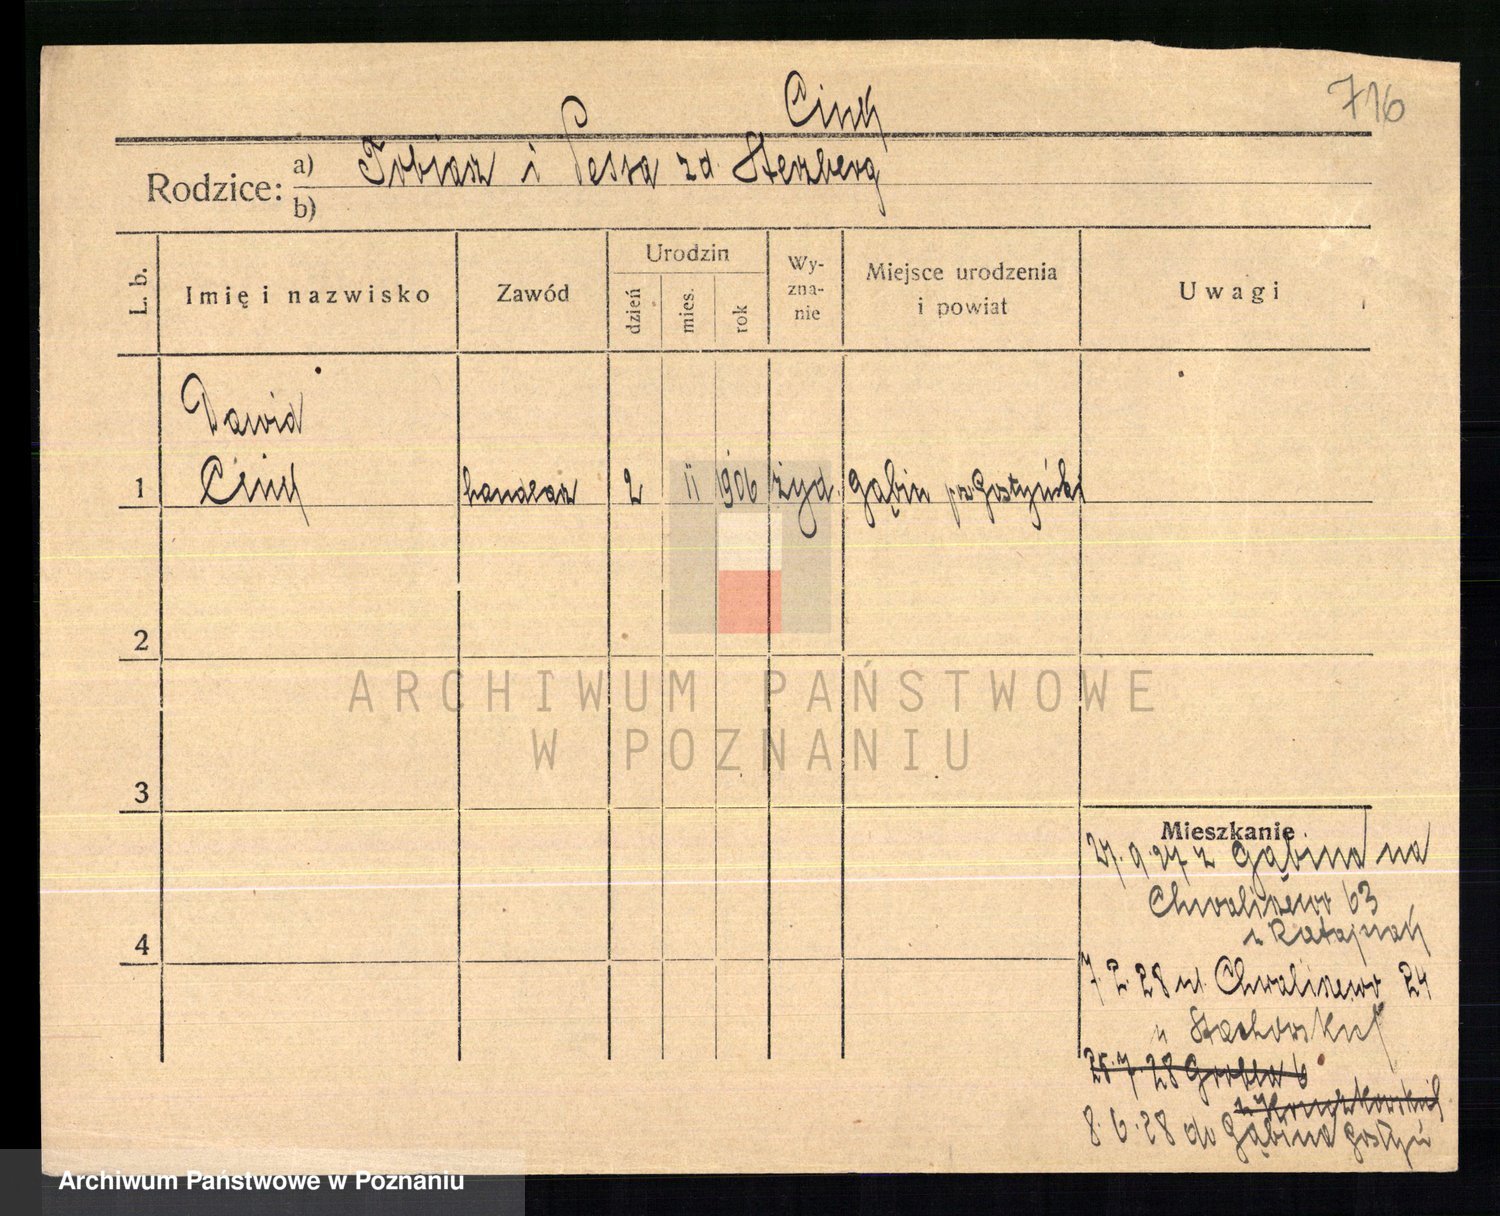 716
Cinh
Rodzice: a) Tobiasz i Pessa zd. Sterzberg
b)
L. b. Imię i nazwisko Zawód Urodzin dzień mies. rok Wyznanie Miejsce urodzenia i powiat Uwagi
Dawid
1 Cinh handlarz 2 II 906 żyd. Gąbin pow Gostyński
2
3
4
Mieszkanie
27.9.27 z Gąbina na
Chwaliszewo 63
u Ratajnah
7.2.28 ul. Chwaliszewo 24
u Stachowskich
25.7.28 Grobla 6
8.6.28 do Gąbina Gostyń
ARCHIWUM PAŃSTWOWE
W POZNANIU
Archiwum Państwowe w Poznaniu